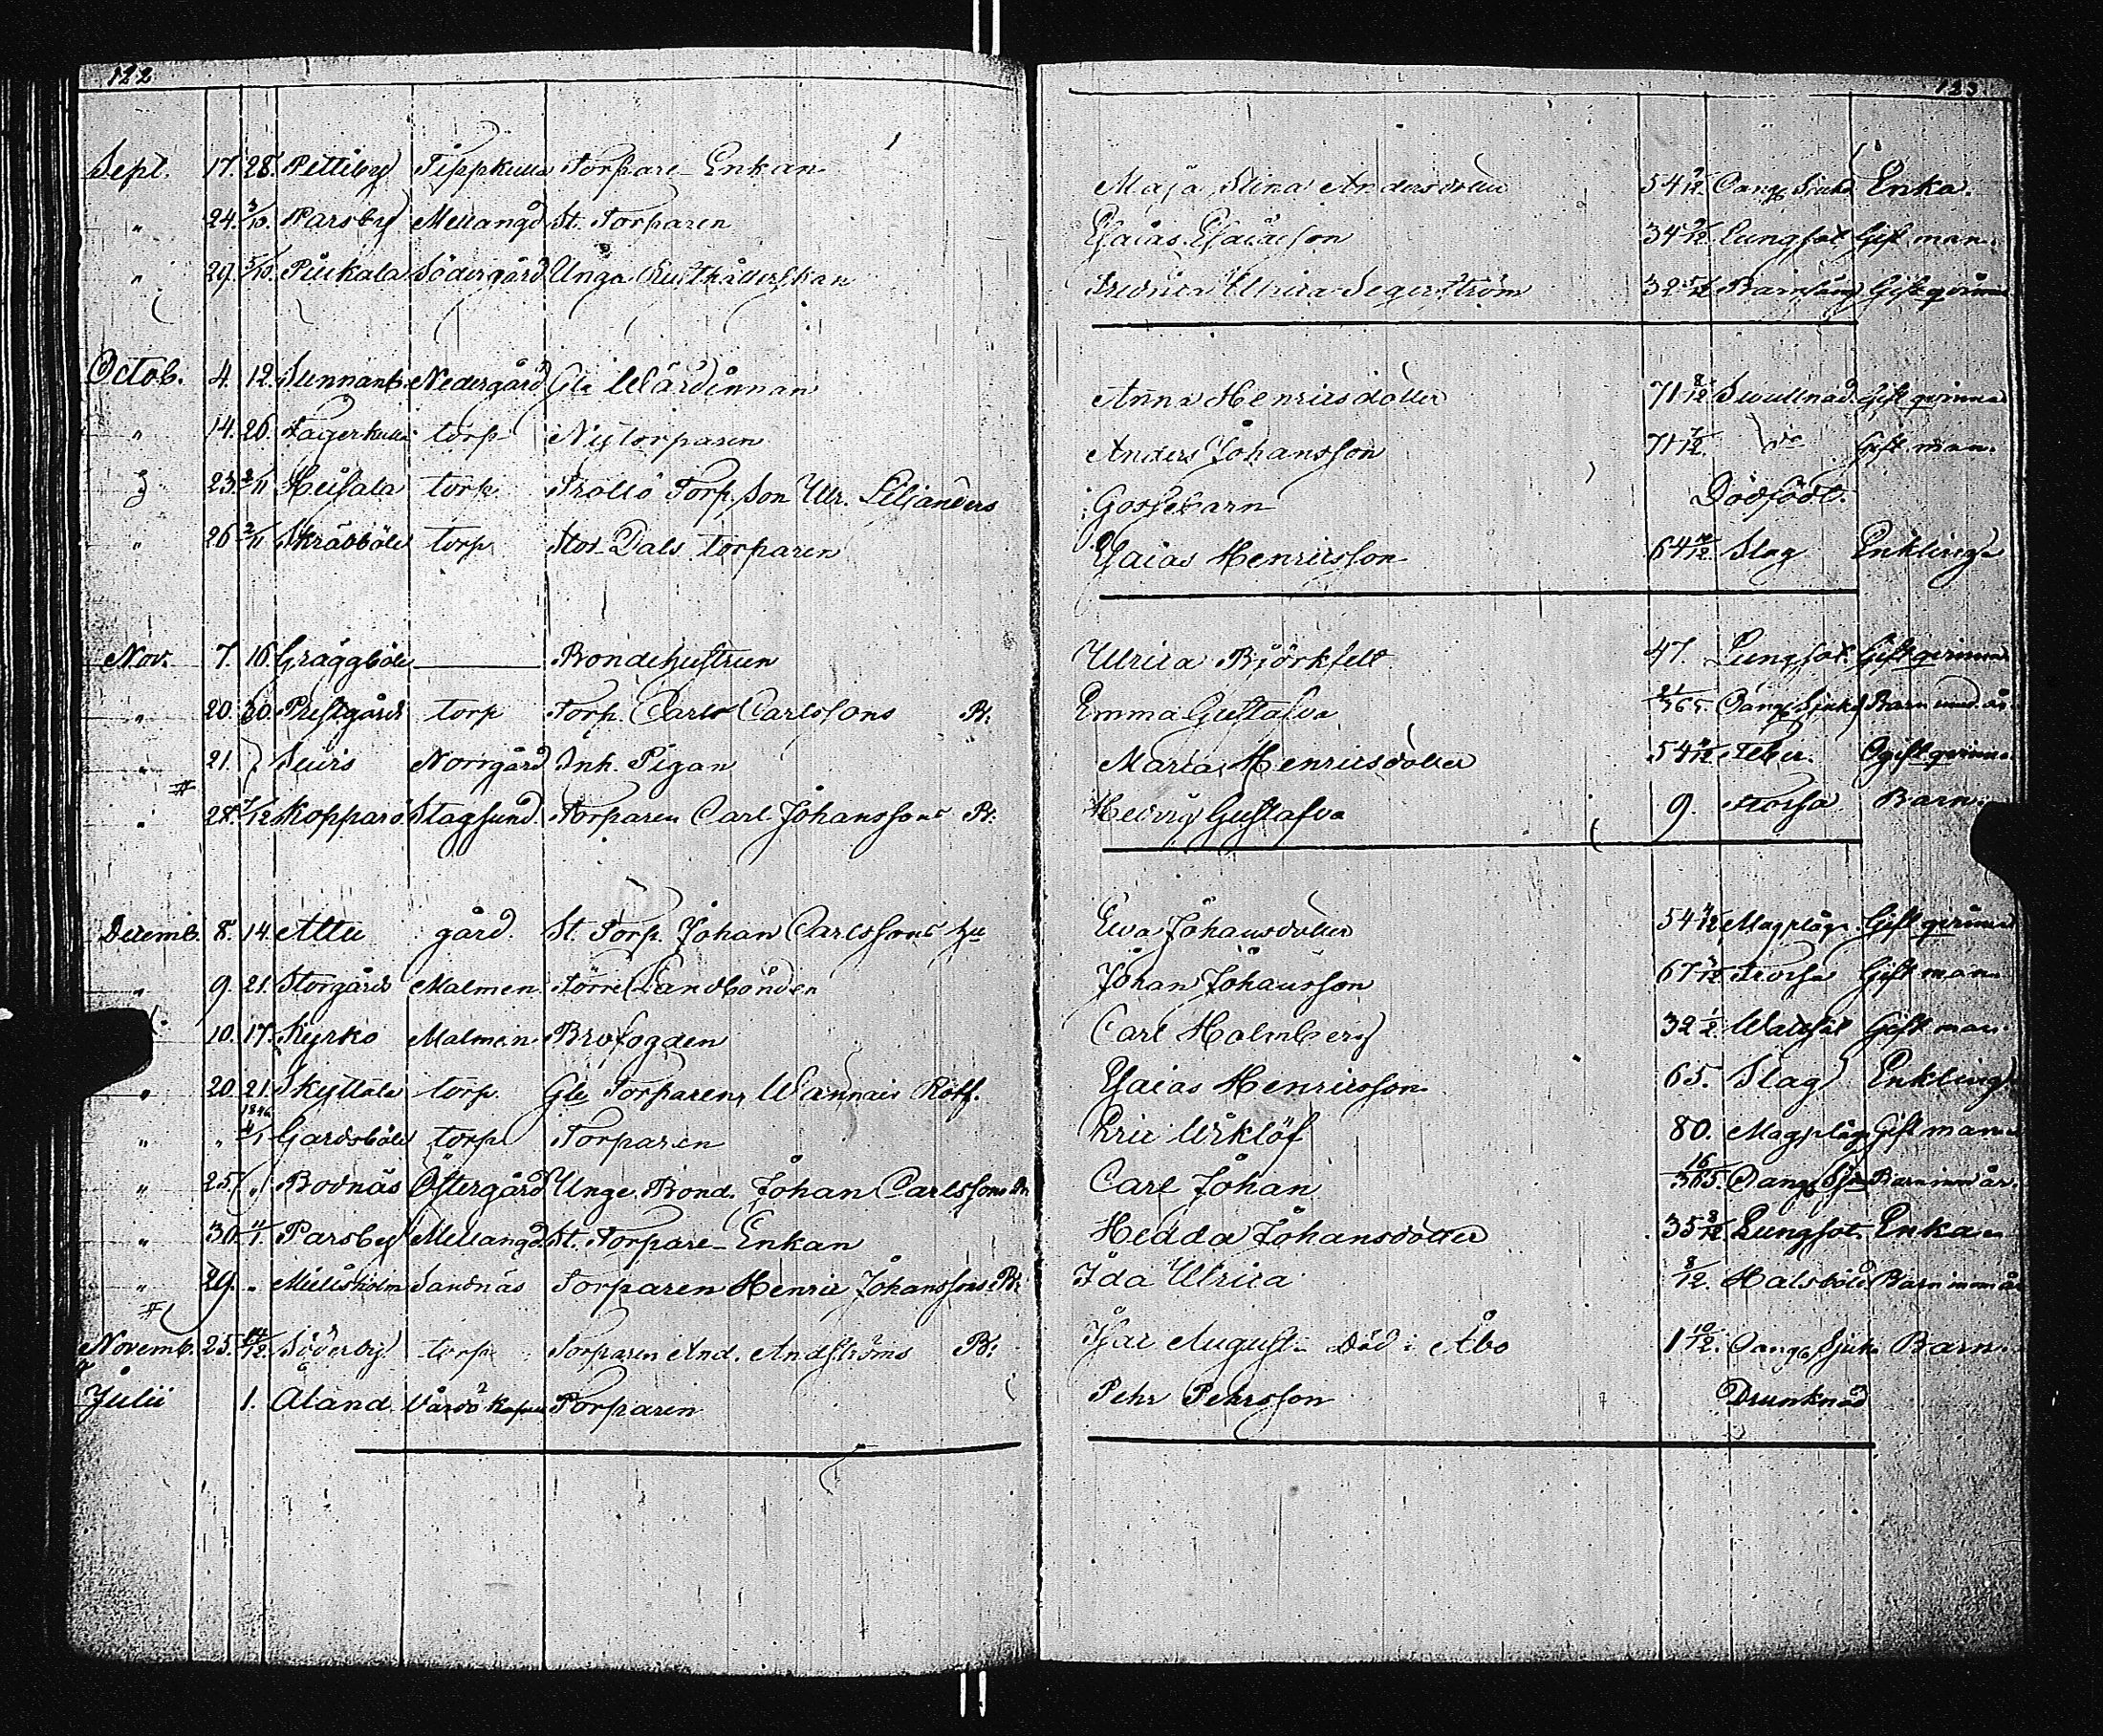 122
123
Sept. 17. 28. Pettiby Tippkulla Torpare Enkan Maja Stina Andersdotter 54 9/12. Enka.
" 24. 3/10. Parsby Mellangd St. Torparen Esaias Esaiasson 34 9/12. Lungsot Gift man.
" 29. 5/10. Piukala Södergård Unga Rusthållerskan Fredrica Ulrica Segerström 32 5/12 Barnsäng Gift qvinna
Octob. 4. 12. Sunnanb. Nedergård Gla Wärdinnan Anna Henricsdotter 71 8/12 Swullnad. Gift qvinna
" 14. 26. Fagerkulla torp Nytorparen Anders Johansson 71 7/12. do Gift man.
23. 2/11 torp Trollö Torp. Son Ulr. Liljanders Gossebarn Dödfödt.
" 26 2/11 Skräbböle torp Stor Dals torparen Esaias Henricsson 64 10/12. Slag Enkling
Nov. 7. 16. Gräggböle — Bondehustrun Ulrica Björkfelt 47. Lungsot. Gift qvinna
" 20. 30. Prestgårds torp Torp. Carl Carlssons Br. Emma Gustafva 21/365. Barn und. år.
" 21. Norrgård Inh. Pigan Maria Henricsdotter 54 Feber. Ogift qvinna
# " 28. 7/12 Kopparö Stagsund. Torparen Carl Johanssons Br. Hedvig Gustafva 9. Barn.
Decemb. 8. 14. Attu gård St. Torp. Johan Carlssons hu Eva Johansdotter 54 Magplåga. Gift qvinna
" 9. 21. Storgårds Malmen. Landbonden Johan Johansson 67 Gift man
10. 17. Kyrko Malmen Brofogden Carl Holmberg 32 1/2. Gift man.
" 20. 21. Skyttala torp Gle Torparen, Wannais Rotf. Esaias Henricsson 65. Slag Enkling
" " 1846 4/1 Gardsböle torp Torparen Eric Urklöf 80. Magplåg. Gift man
" 25. " Bodnäs Östergård Unge Bond. Johan Carlssons Br Carl Johan 16/365. Barn inom år.
" 30. 4/1. Parsby Mellangd. St. Torpare Enkan Hedda Johansdotter 35 8/12. Lungsot. Enka
" 29. " Mielisholm Sandnäs Torparen Henric Johanssons Br: Ida Ulrica 8/12. Halsböld Barn inom år
# Novemb. 25. 14/12 Söderby torp Torparen And. Andströms Br: Isac August Död i Åbo 1 10/12. Barn.
Julii 1. Åland. Vårdö Kapell Torparen Pehr Pehrsson Drunknad